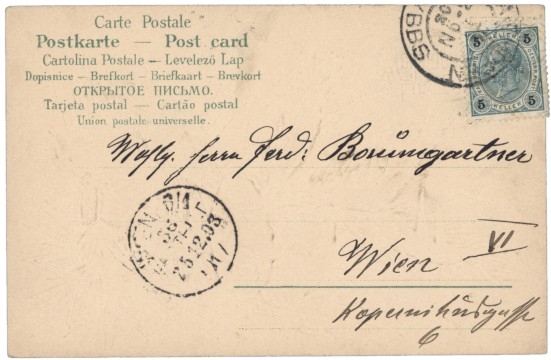 Carte Postale
Postkarte — Post card
Cartolina Postale — Levelező Lap
Dopisnice – Brefkort – Briefkaart – Brevkort
ОТКРЫТОЕ ПИСЬМО.
Tarjeta postal – Cartão postal
Union postale universelle.
YBBS
5 5
5 5
HELLER
Herrn Ferd: Baumgartner
WIEN 6/1
25.12.03
Wien VI
Kopernikusgasse
6